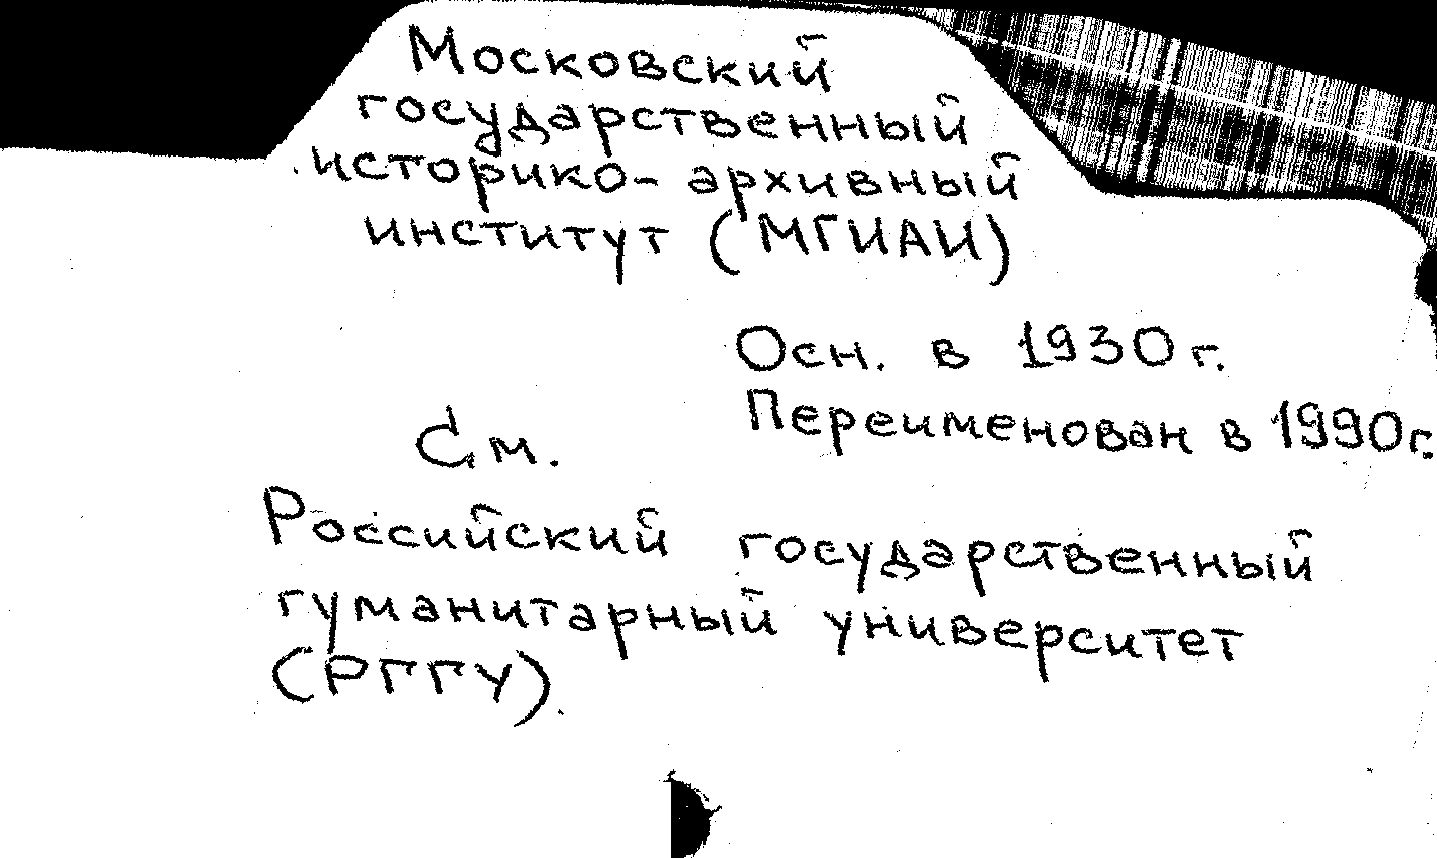 Московский
государственный
историко-архивный
институт (МГИАИ)
Осн. в 1930 г.
Переименован в 1990г.
См.
Российский государственный
гуманитарный университет
(РГГУ).